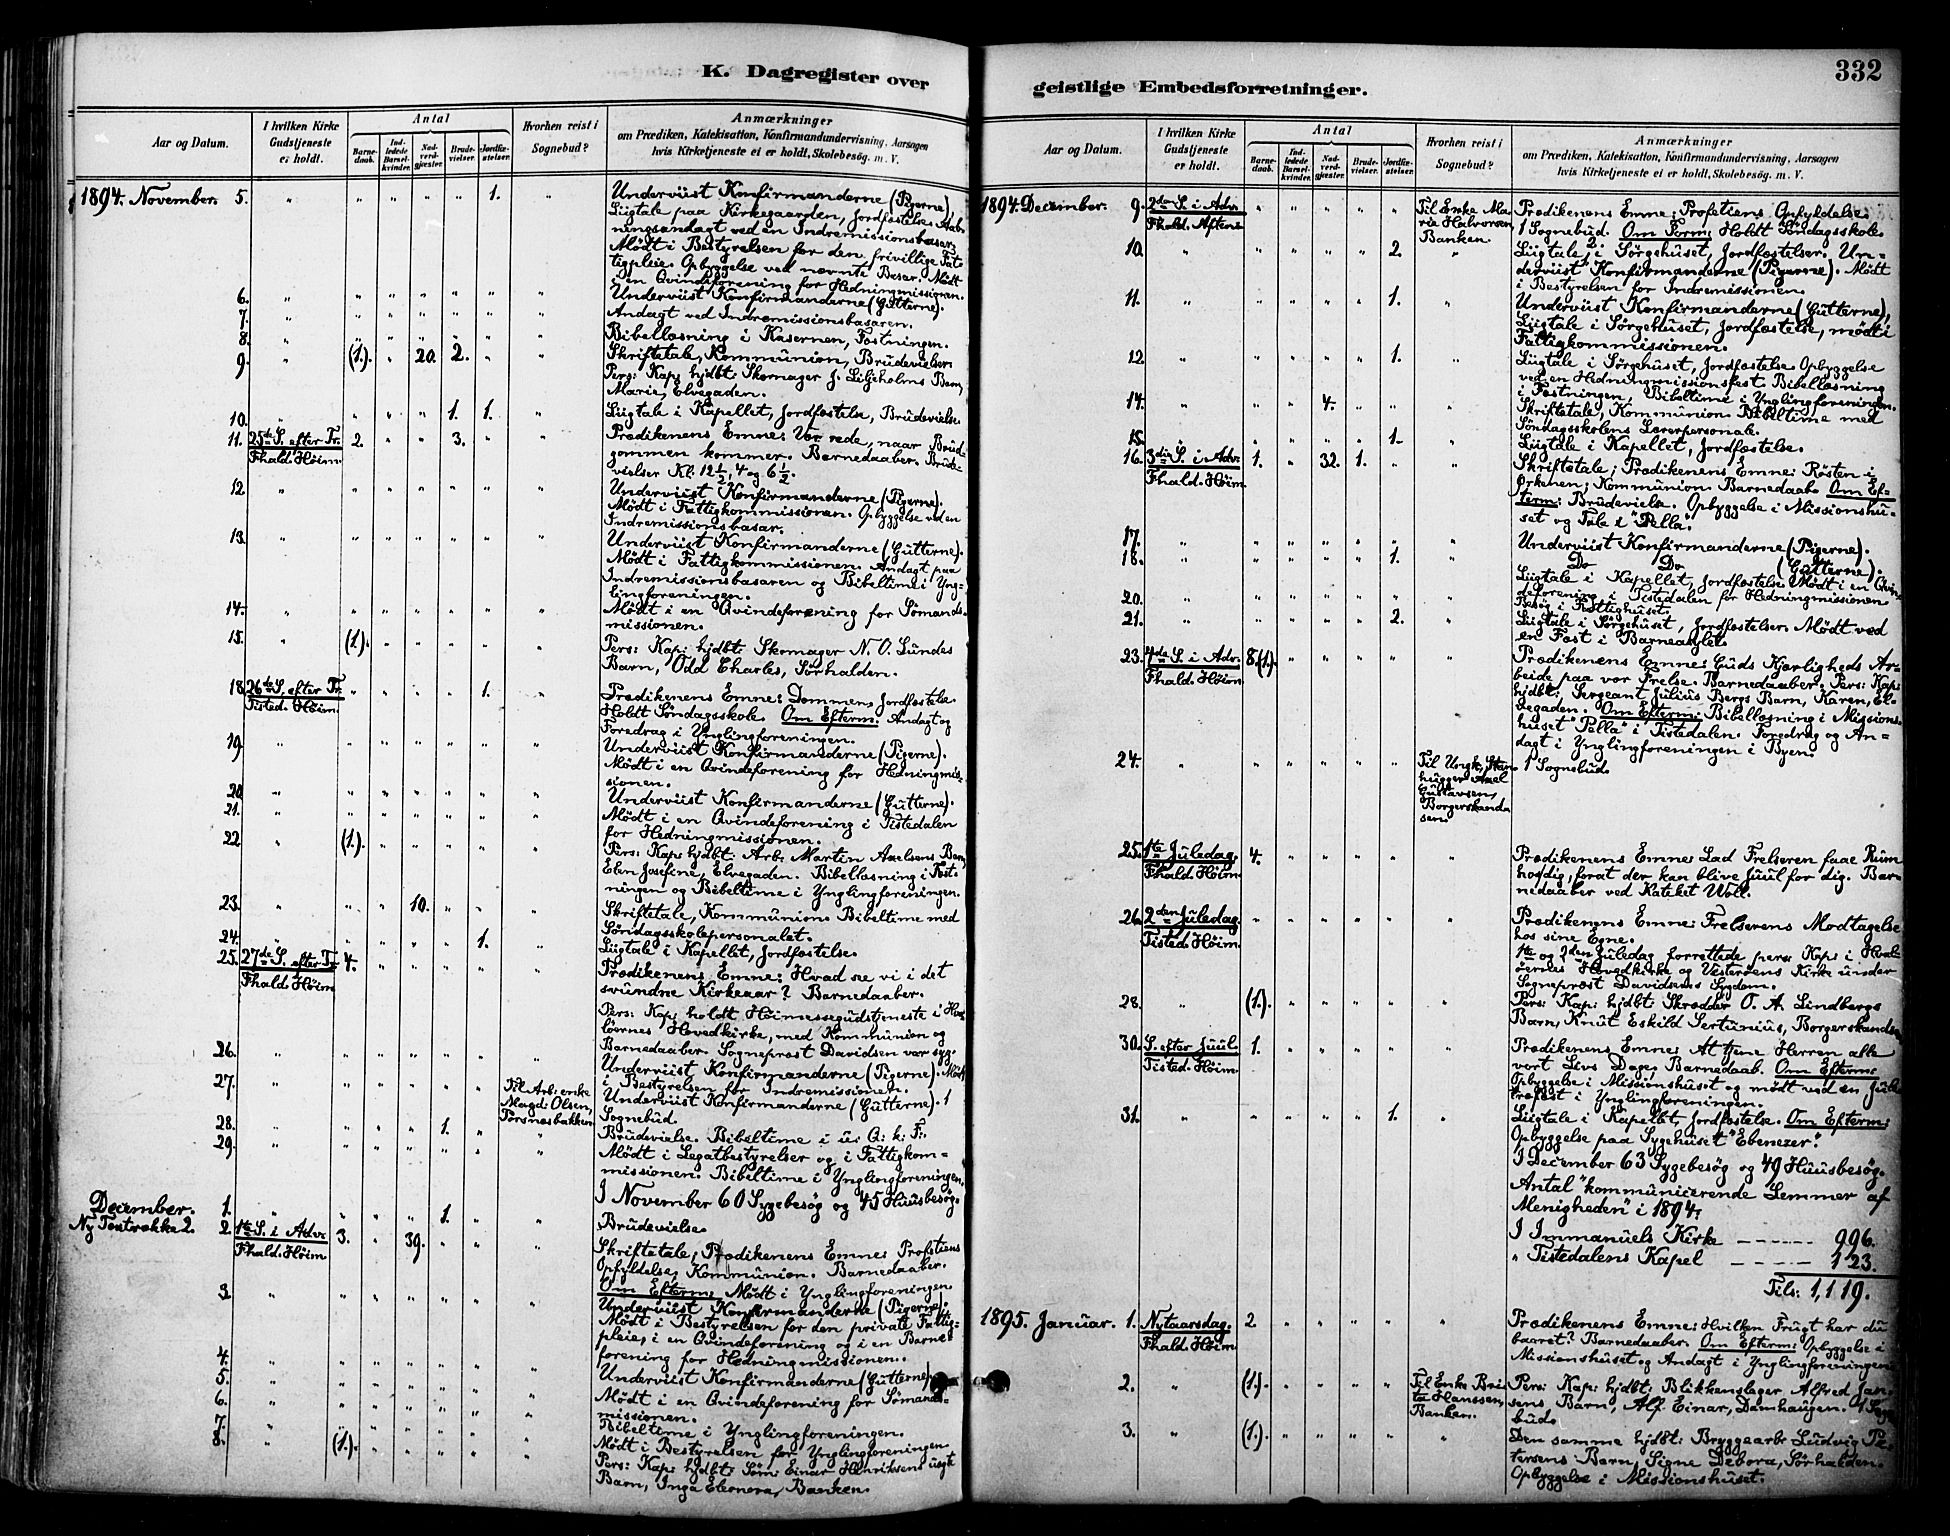 K. Dagregister over
Aar og Datum.
I hvilken Kirke Gudstjeneste er holdt.
Antal
Barnedaab.
Indledede Barselkvinder.
Nadverdgjæster.
Brudevielser.
Jordfæstelser.
Hvorhen reist i Sognebud?
Anmærkninger
om Prædiken, Katekisation, Konfirmandundervisning, Aarsagen
hvis Kirketjeneste ei er holdt, Skolebesøg. m. V.
1894. November. 5. " " " " " 1. " Underviist Konfirmanderne (Pigerne)
Liigtale paa Kirkegaarden, Jordfæstelse. Aab-
ningsandagt ved en Indremissionsbasar.
Mødt i Bestyrelsen for den frivillige Fat-
tigpleie. Opbyggelse ved nævnte Basar. Mødt
i en Qvindeforening for Hedningmissionen.
6. " " " " " " " Underviist Konfirmanderne (Gutterne).
7. " " " " " " " Andagt ved Indremissionsbasaren.
8. " " " " " " " Bibellæsning i Kasernen, Fæstningen.
9. " (1.) " 20. 2. " " Skriftetale, Kommunion, Brudevielser.
Pers: Kap: hjdbt: Skomager J. Liljeholms Barn,
Marie, Elvegaden.
10. " " " " 1. 1. " Liigtale i Kapellet, Jordfæstelse, Brudevielse.
11. 25de S. efter Tr. 2. " " 3. " " Prædikenens Emne: Vær rede, naar Brud-
Fhald. Høim. gommen kommer. Barnedaaber. Brude-
vielser Kl. 12 1/2, 4 og 6 1/2.
12. " " " " " " " Underviist Konfirmanderne (Pigerne).
Mødt i Fattigkommissionen. Opbyggelse ved en
Indremissionsbasar.
13. " " " " " " " Underviist Konfirmanderne (Gutterne).
Mødt i Fattigkommissionen. Andagt paa
Indremissionsbasaren og Bibeltime i Yng-
lingforeningen.
14. " " " " " " " Mødt i en Qvindeforening for Sømands-
missionen.
15. " (1.) " " " " " Pers: Kap: hjdbt: Skomager N. O. Lundes
Barn, Odd Charles, Sørhalden.
18. 26de S. efter Tr. " " " " 1. " Prædikenens Emne: Dommens Jordfæstelse.
Tisted. Høim. Holdt Søndagsskole. Om Efterm: Andagt og
Foredrag i Ynglingforeningen.
19. " " " " " " " Underviist Konfirmanderne (Pigerne).
Mødt i en Qvindeforening for Hedningmis-
sionen.
20. " " " " " " " Underviist Konfirmanderne (Gutterne).
21. " " " " " " " Mødt i en Qvindeforening i Tistedalen
for Hedningmissionen.
22. " (1.) " " " " " Pers: Kap: hjdbt: Arb: Martin Axelsens Barn,
Elen Josefine, Elvegaden. Bibellæsning i Fæst-
ningen og Bibeltime i Ynglingforeningen.
23. " " " 10. " " " Skriftetale, Kommunion. Bibeltime med
Søndagsskolepersonalet.
24. " " " " " 1. " Liigtale i Kapellet, Jordfæstelse.
25. 27de S. efter Tr. 4. " " " " " Prædikenens Emne: Hvad see vi i det
Fhald. Høim. svundne Kirkeaar? Barnedaaber.
Pers: Kap: holdt Høimessegudstjeneste i Hva-
løernes Hovedkirke, med Kommunion og
Barnedaaber. Sogneprost Davidsen var syg.
26. " " " " " " " Underviist Konfirmanderne (Pigerne). Mødt
i Bestyrelsen for Indremissionen.
27. " " " " " " Til Arb: enke Magd: Olsen, Torsnesbakken. Underviist Konfirmanderne (Gutterne). 1
Sognebud.
28. " " " " 1. " " Brudevielse. Bibeltime i u: Q: k: F:
29. " " " " " " " Mødt i Legatbestyrelser og i Fattigkom-
missionen. Bibeltime i Ynglingforeningen.
I November 60 Sygebesøg og 45 Huusbesøg.
December. 1. " " " " 1. " " Brudevielse.
Ny Textrække 2. 2. 1ste S. i Adv. 3. " 39. " " " Skriftetale; Prædikenens Emne: Profetiens
Fhald. Høim. Opfyldelse, Kommunion. Barnedaaber.
Om Efterm: Mødt i Ynglingforeningen.
3. " " " " " " " Underviist Konfirmanderne (Pigerne).
Mødt i Bestyrelsen for den private Fattig-
pleie, i en Qvindeforening og i en Barne-
forening for Hedningmissionen.
4. " " " " " " " Underviist Konfirmanderne (Gutterne).
5. " " " " " " " Mødt i en Qvindeforening for Sømands-
missionen.
6. " " " " " " " Bibeltime i Ynglingforeningen.
7. " " " " " " " Mødt i Bestyrelsen for Ynglingforeningen.
8. " (1.) " " " " " Pers: Kap: hjdbt: Søm: Einar Henriksens uægte
Barn, Inga Eleonora, Banken.
geistlige Embedsforretninger.
332
Aar og Datum.
I hvilken Kirke Gudstjeneste er holdt.
Antal
Barnedaab.
Indledede Barselkvinder.
Nadverdgjæster.
Brudevielser.
Jordfæstelser.
Hvorhen reist i Sognebud?
Anmærkninger
om Prædiken, Katekisation, Konfirmandundervisning, Aarsagen
hvis Kirketjeneste ei er holdt, Skolebesøg. m. V.
1894. December. 9. 2den S. i Adv. " " " " " Til Enke Maria Halvorsen Banken. Prædikenens Emne: Profetiens Opfyldelse.
Fhald. Aftens. 1 Sognebud. Om Form: Holdt Søndagsskole.
10. " " " " " 2. " Liigtale i Sørgehuset, Jordfæstelser. Un-
derviist Konfirmanderne (Pigerne). Mødt
i Bestyrelsen for Indremissionen.
11. " " " " " 1. " Underviist Konfirmanderne (Gutterne),
Liigtale i Sørgehuset, Jordfæstelse, mødt i
Fattigkommissionen.
12. " " " " " 1. " Liigtale i Sørgehuset, Jordfæstelse. Opbyggelse
ved en Hedningmissionsfest. Bibellæsning
i Fæstningen. Bibeltime i Ynglingforeningen.
14. " " " 4. " " " Skriftetale, Kommunion. Bibeltime med
Søndagsskolens Lærerpersonale.
15. " " " " " 1. " Liigtale i Kapellet, Jordfæstelse.
16. 3die S. i Adv. 1. " 32. 1. " " Skriftetale; Prædikenens Emne: Røsten i
Fhald. Høim. Ørkenen; Kommunion. Barnedaab. Om Ef-
term: Brudevielse. Opbyggelse i Missionshu-
set og Tale i "Pella".
17. " " " " " " " Underviist Konfirmanderne (Pigerne).
18. " " " " " 1. " Do Do (Gutterne).
Liigtale i Kapellet, Jordfæstelse. Mødt i en Qvin-
deforening i Tistedalen for Hedningmissionen.
20. " " " " " " " Besøg i Fattighuset.
21. " " " " " 2. " Liigtale i Sørgehuset, Jordfæstelser. Mødt ved
en Fest i Barneasylet.
23. 4de S. i Adv. 8.(1.) " " " " " Prædikenens Emne: Guds Kjærligheds Ar-
Fhald. Høim. beide paa vor Frelse. Barnedaaber. Pers: Kap:
hjdbt: Sergeant Julius Bergs Barn, Karen, El-
vegaden. Om Efterm: Bibellæsning i Missions-
huset "Pella" i Tistedalen. Foredrag og An-
dagt i Ynglingforeningen i Byen.
24. " " " " " " Til Ungk: Stenhugger Axel Gustavsen, Borgerskandsen. 1 Sognebud.
25. 1ste Juledag. 4. " " " " " Prædikenens Emne: Lad Frelseren faae Rum
Fhald. Høim. hos dig, forat der kan blive Juul for dig. Bar-
nedaaber ved Kateket Woll.
26. 2den Juledag. " " " " " " Prædikenens Emne: Frelserens Modtagelse
Tisted. Høim. hos sine Egne.
1ste og 2den Juledag forrettede pers: Kap: i Hval-
øernes Hovedkirke og Vesterøens Kirke under
Sogneprost Davidsens Sygdom.
28. " (1.) " " " " " Pers: Kap: hjdbt: Skrædder O. A. Lindbergs
Barn, Knut Eskild Sertunius, Borgerskandsen.
30. S. efter Juul. 1. " " " " " Prædikenens Emne: At tjene Herren alle
Tisted. Høim. vort Livs Dage. Barnedaab. Om Efterm:
Opbyggelse i Missionshuset og mødt ved en Jule-
træfest i Ynglingforeningen.
31. " " " " " 1. " Liigtale i Kapellet, Jordfæstelse. Om Efterm:
Opbyggelse paa Sygehuset "Ebenezer".
I December 63 Sygebesøg og 49 Huusbesøg.
Antal "kommunicerende Lemmer af
Menigheden" i 1894:
I Immanuels Kirke ------ 996.
" Tistedalens Kapel ----- 123.
Tils: 1,119.
1895. Januar. 1. Nytaarsdag. 2. " " " " " Prædikenens Emne: Hvilken Frugt har du
Fhald. Høim. baaret? Barnedaaber. Om Efterm: Opbyggelse i
Missionshuset og Andagt i Ynglingforeningen.
2. " (1.) " " " " Til Enke Brita Hanssen, Banken. Pers: Kap: hjdbt: Blikkenslager Alfred Jan-
sens Barn, Alf Einar, Damhaugen. 1 Sogne-
bud.
3. " (1.) " " " " " Den samme hjdbt: Bryggearb: Ludvig Pe-
tersens Barn, Signe Debora, Sørhalden.
Opbyggelse i Missionshuset.